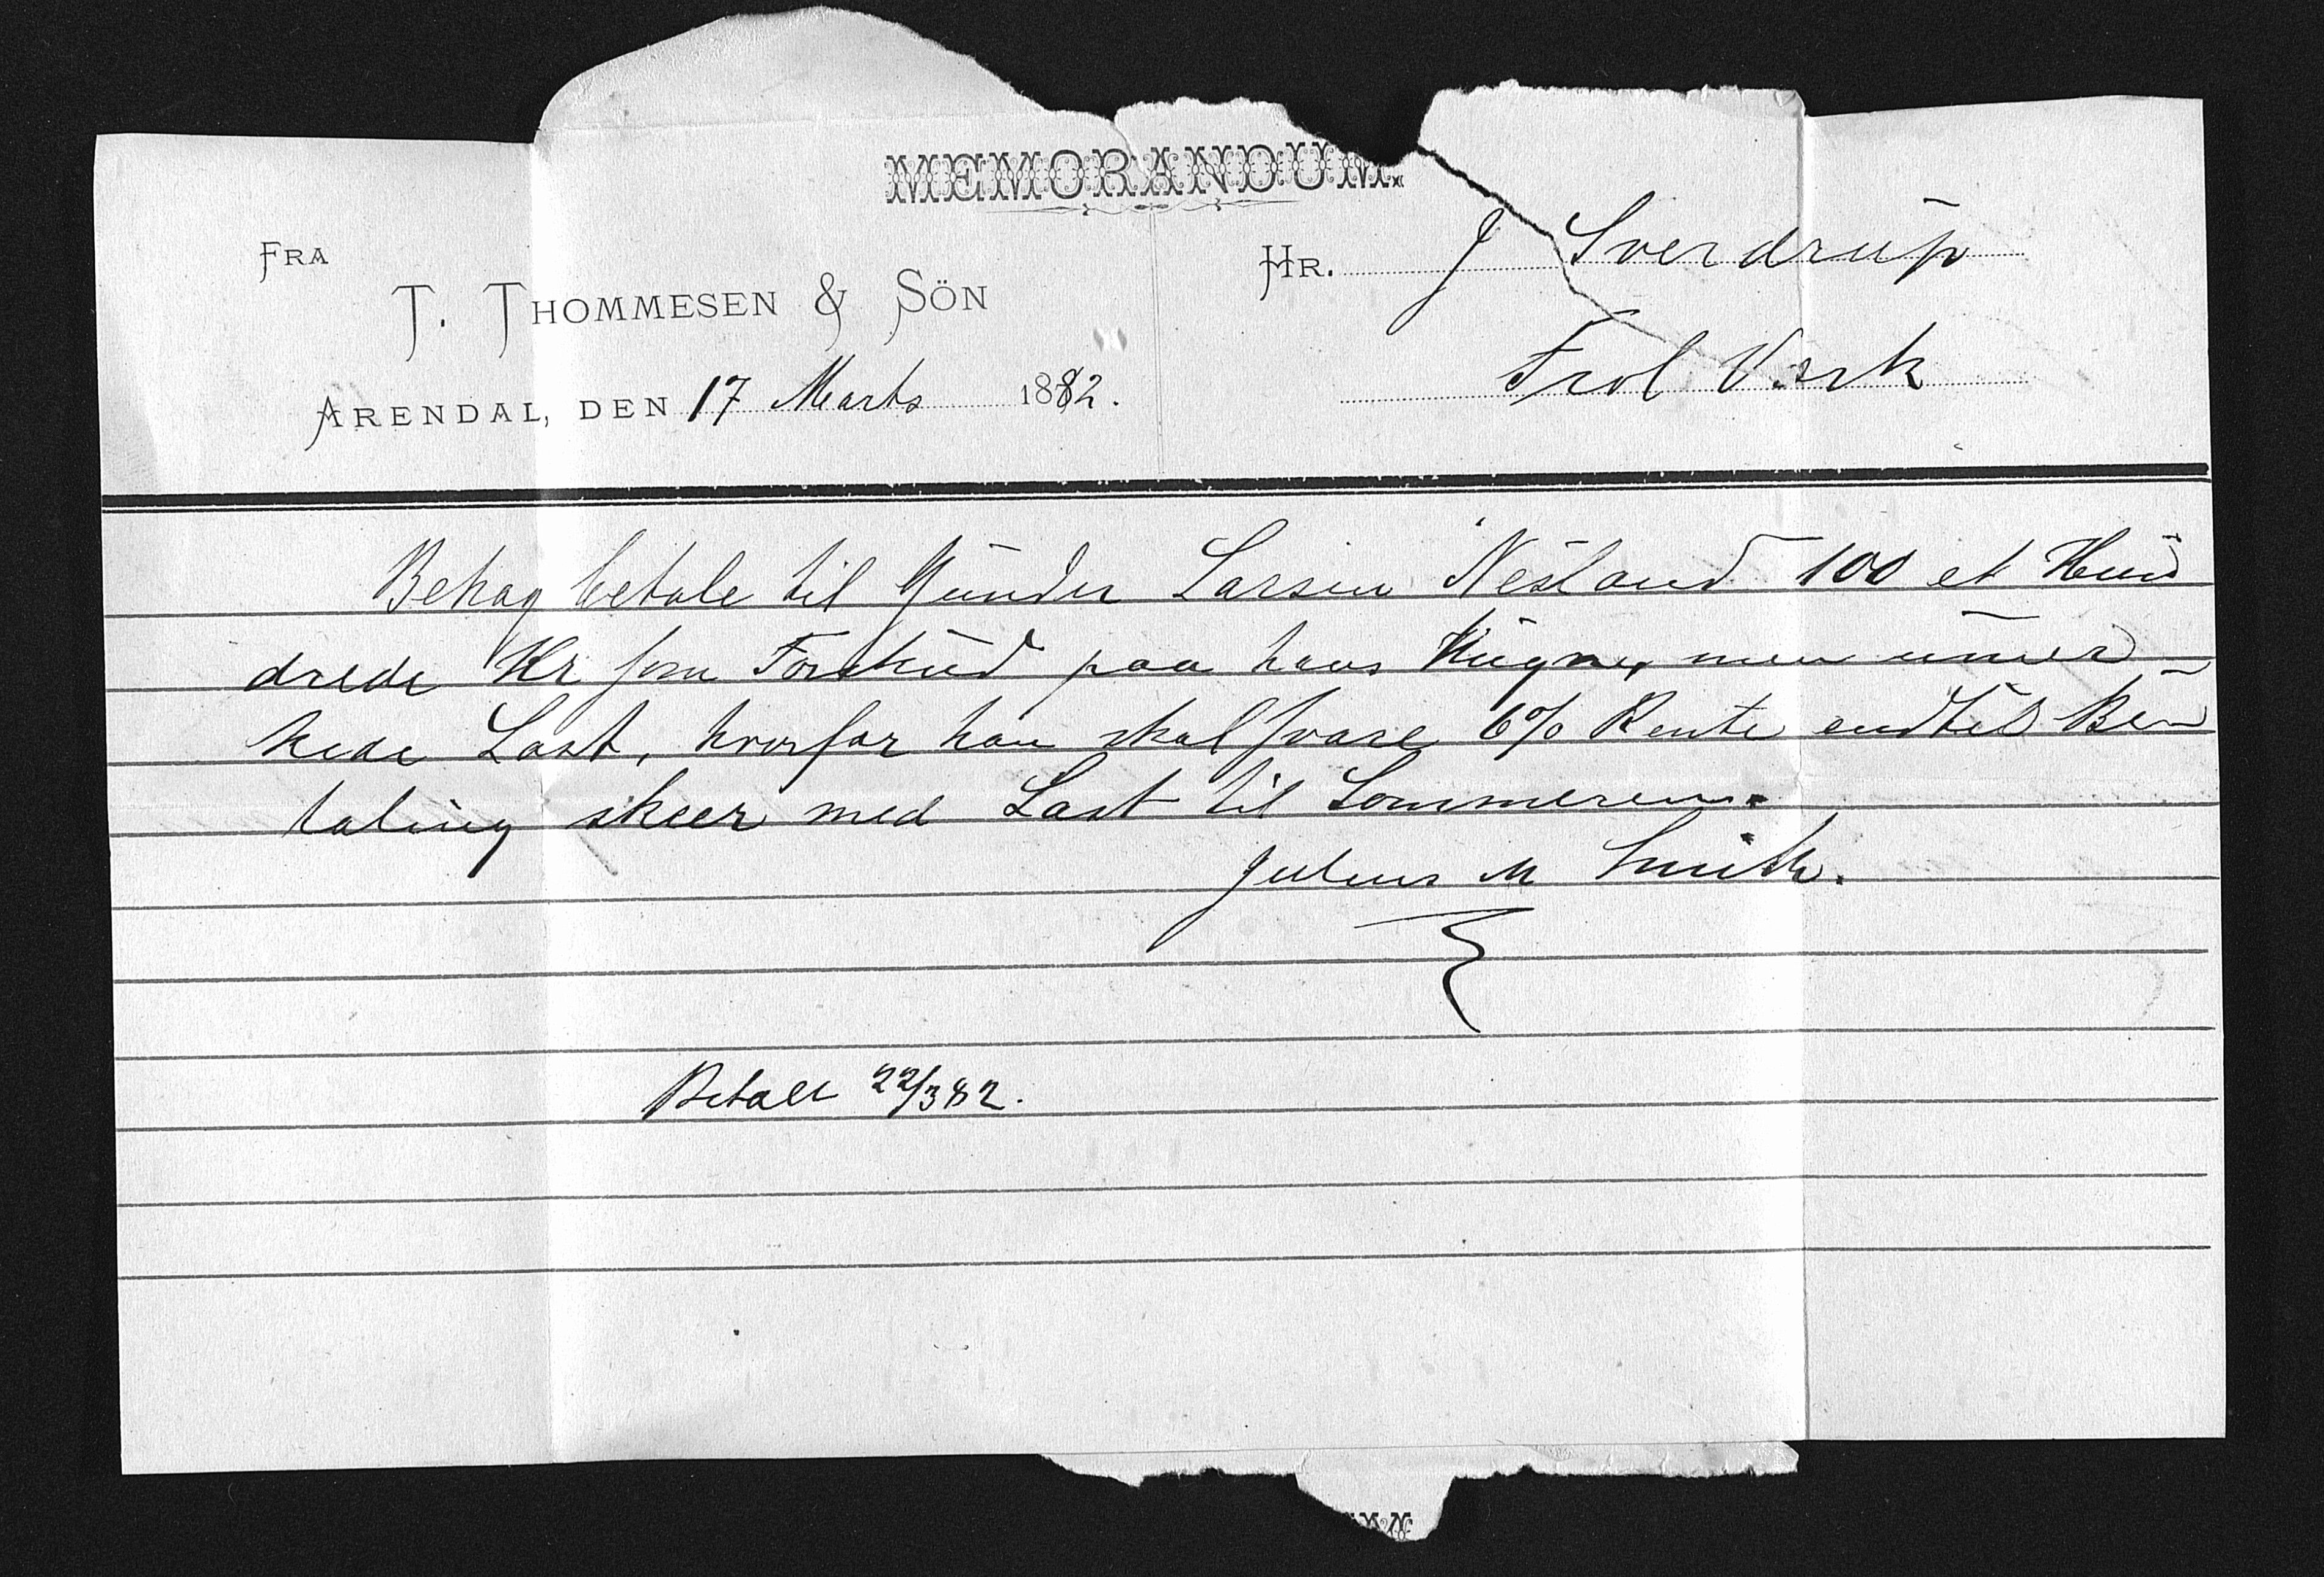 MEMORANDUM.
FRA
T. THOMMESEN & SÖN
ARENDAL, DEN 17 Marts 1882.
HR. J Sverdrup
Frol Værk
Behag betale til Gunder Larsen Nesland 100 et Hun
drede Kr som Forskud paa hans men umer
kede Last, hvorfor han skal svare 6% Rente endtil Be
taling skeer med Last til Sommeren.
Julius M Smith.
Betalt 22/3 82.